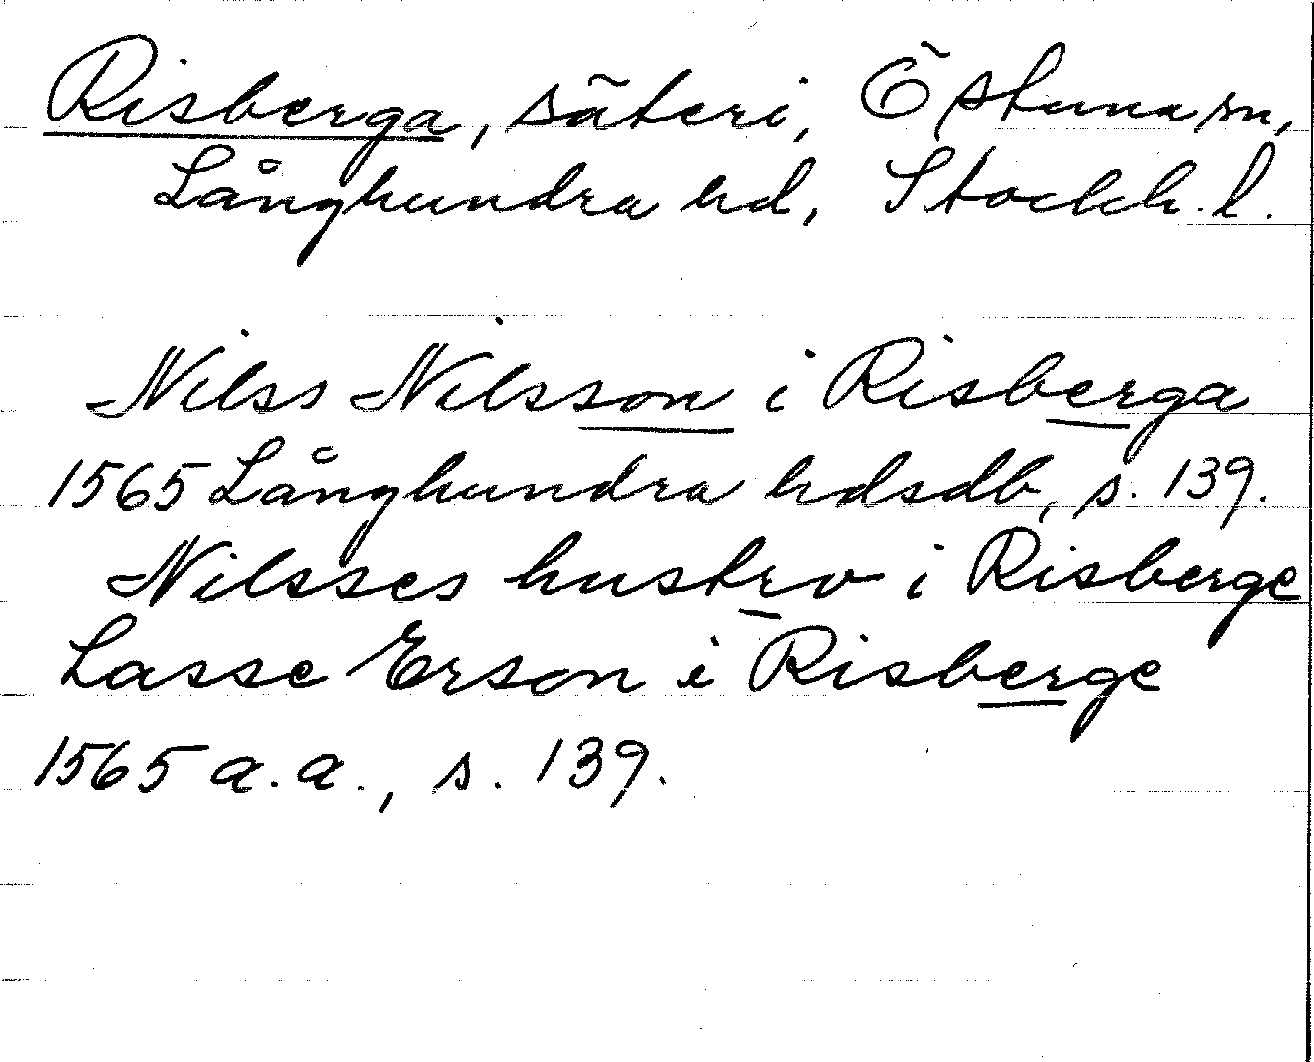 Risberga, säteri, Östuna sn,
Långhundra hd, Stockh. l.
Nilss Nilsson i Risberga
1565 Långhundra hdsdb, s. 139.
Nilsses hustrv i Risberge
Lasse Erson i Risberge
1565 a.a., s. 139.